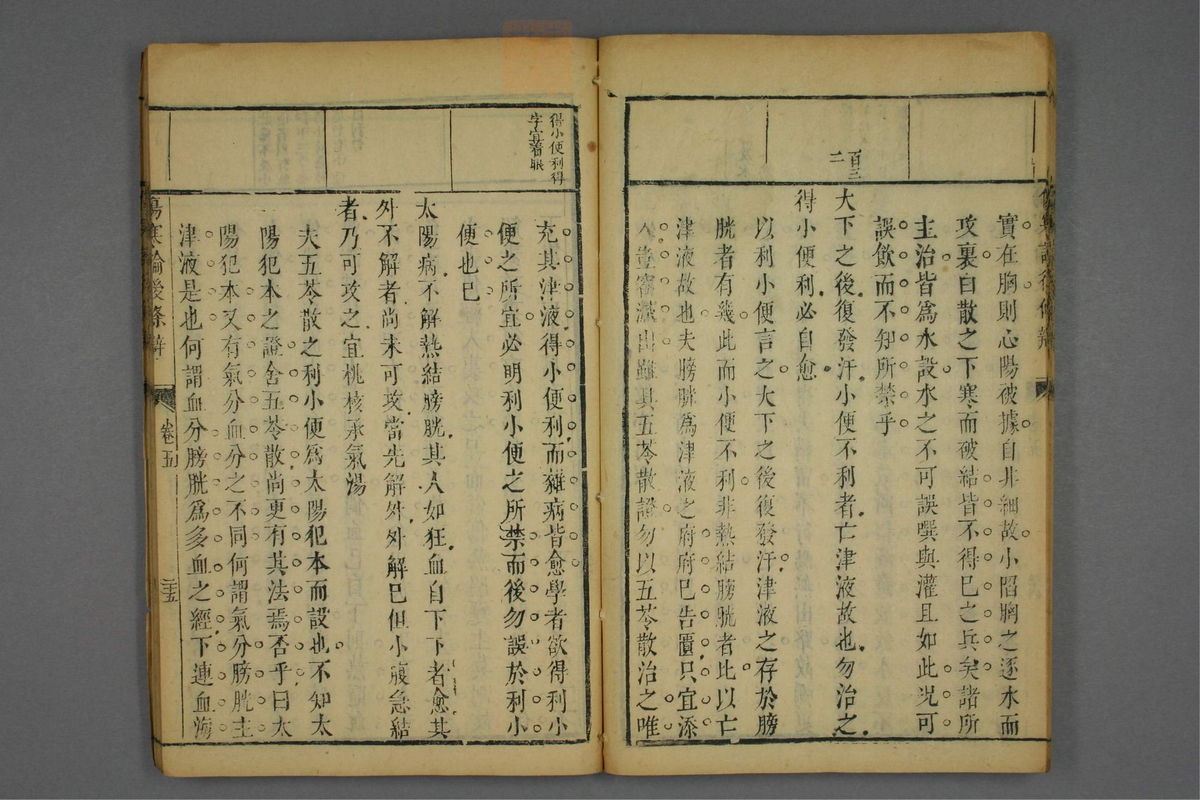 百三
二
實在胸則心陽被據自非細故小陷胸之逐水而
攻裏白散之下寒而破結皆不得已之兵矣諸所
主治皆爲水設水之不可誤噀與灌且如此况可
誤飲而不知所禁乎
大下之後復發汗小便不利者亡津液故也勿治之
得小便利必自愈
以利小便言之大下之後復發汗津液之存於膀
胱者有幾此而小便不利非熱結膀胱者比以亡
津液故也夫膀胱爲津液之府府已告匱只宜添
入豈容滲出雖具五苓散證勿以五苓散治之唯
得小便利得
字宜着眼
充其津液得小便利而雜病皆愈學者欲得利小
便之所宜必明利小便之所禁而後勿誤於利小
便也已
太陽病不解熱結膀胱其人如狂血自下下者愈其
外不解者尚未可攻當先解外外解已但小腹急結
者乃可攻之宜桃核承氣湯
夫五苓散之利小便爲太陽犯本而設也不知太
陽犯本之證舍五苓散尚更有其法焉否乎曰太
陽犯本又有氣分血分之不同何謂氣分膀胱主
津液是也何謂血分膀胱爲多血之經下連血海
傷寒論後條辨
卷五
二十五